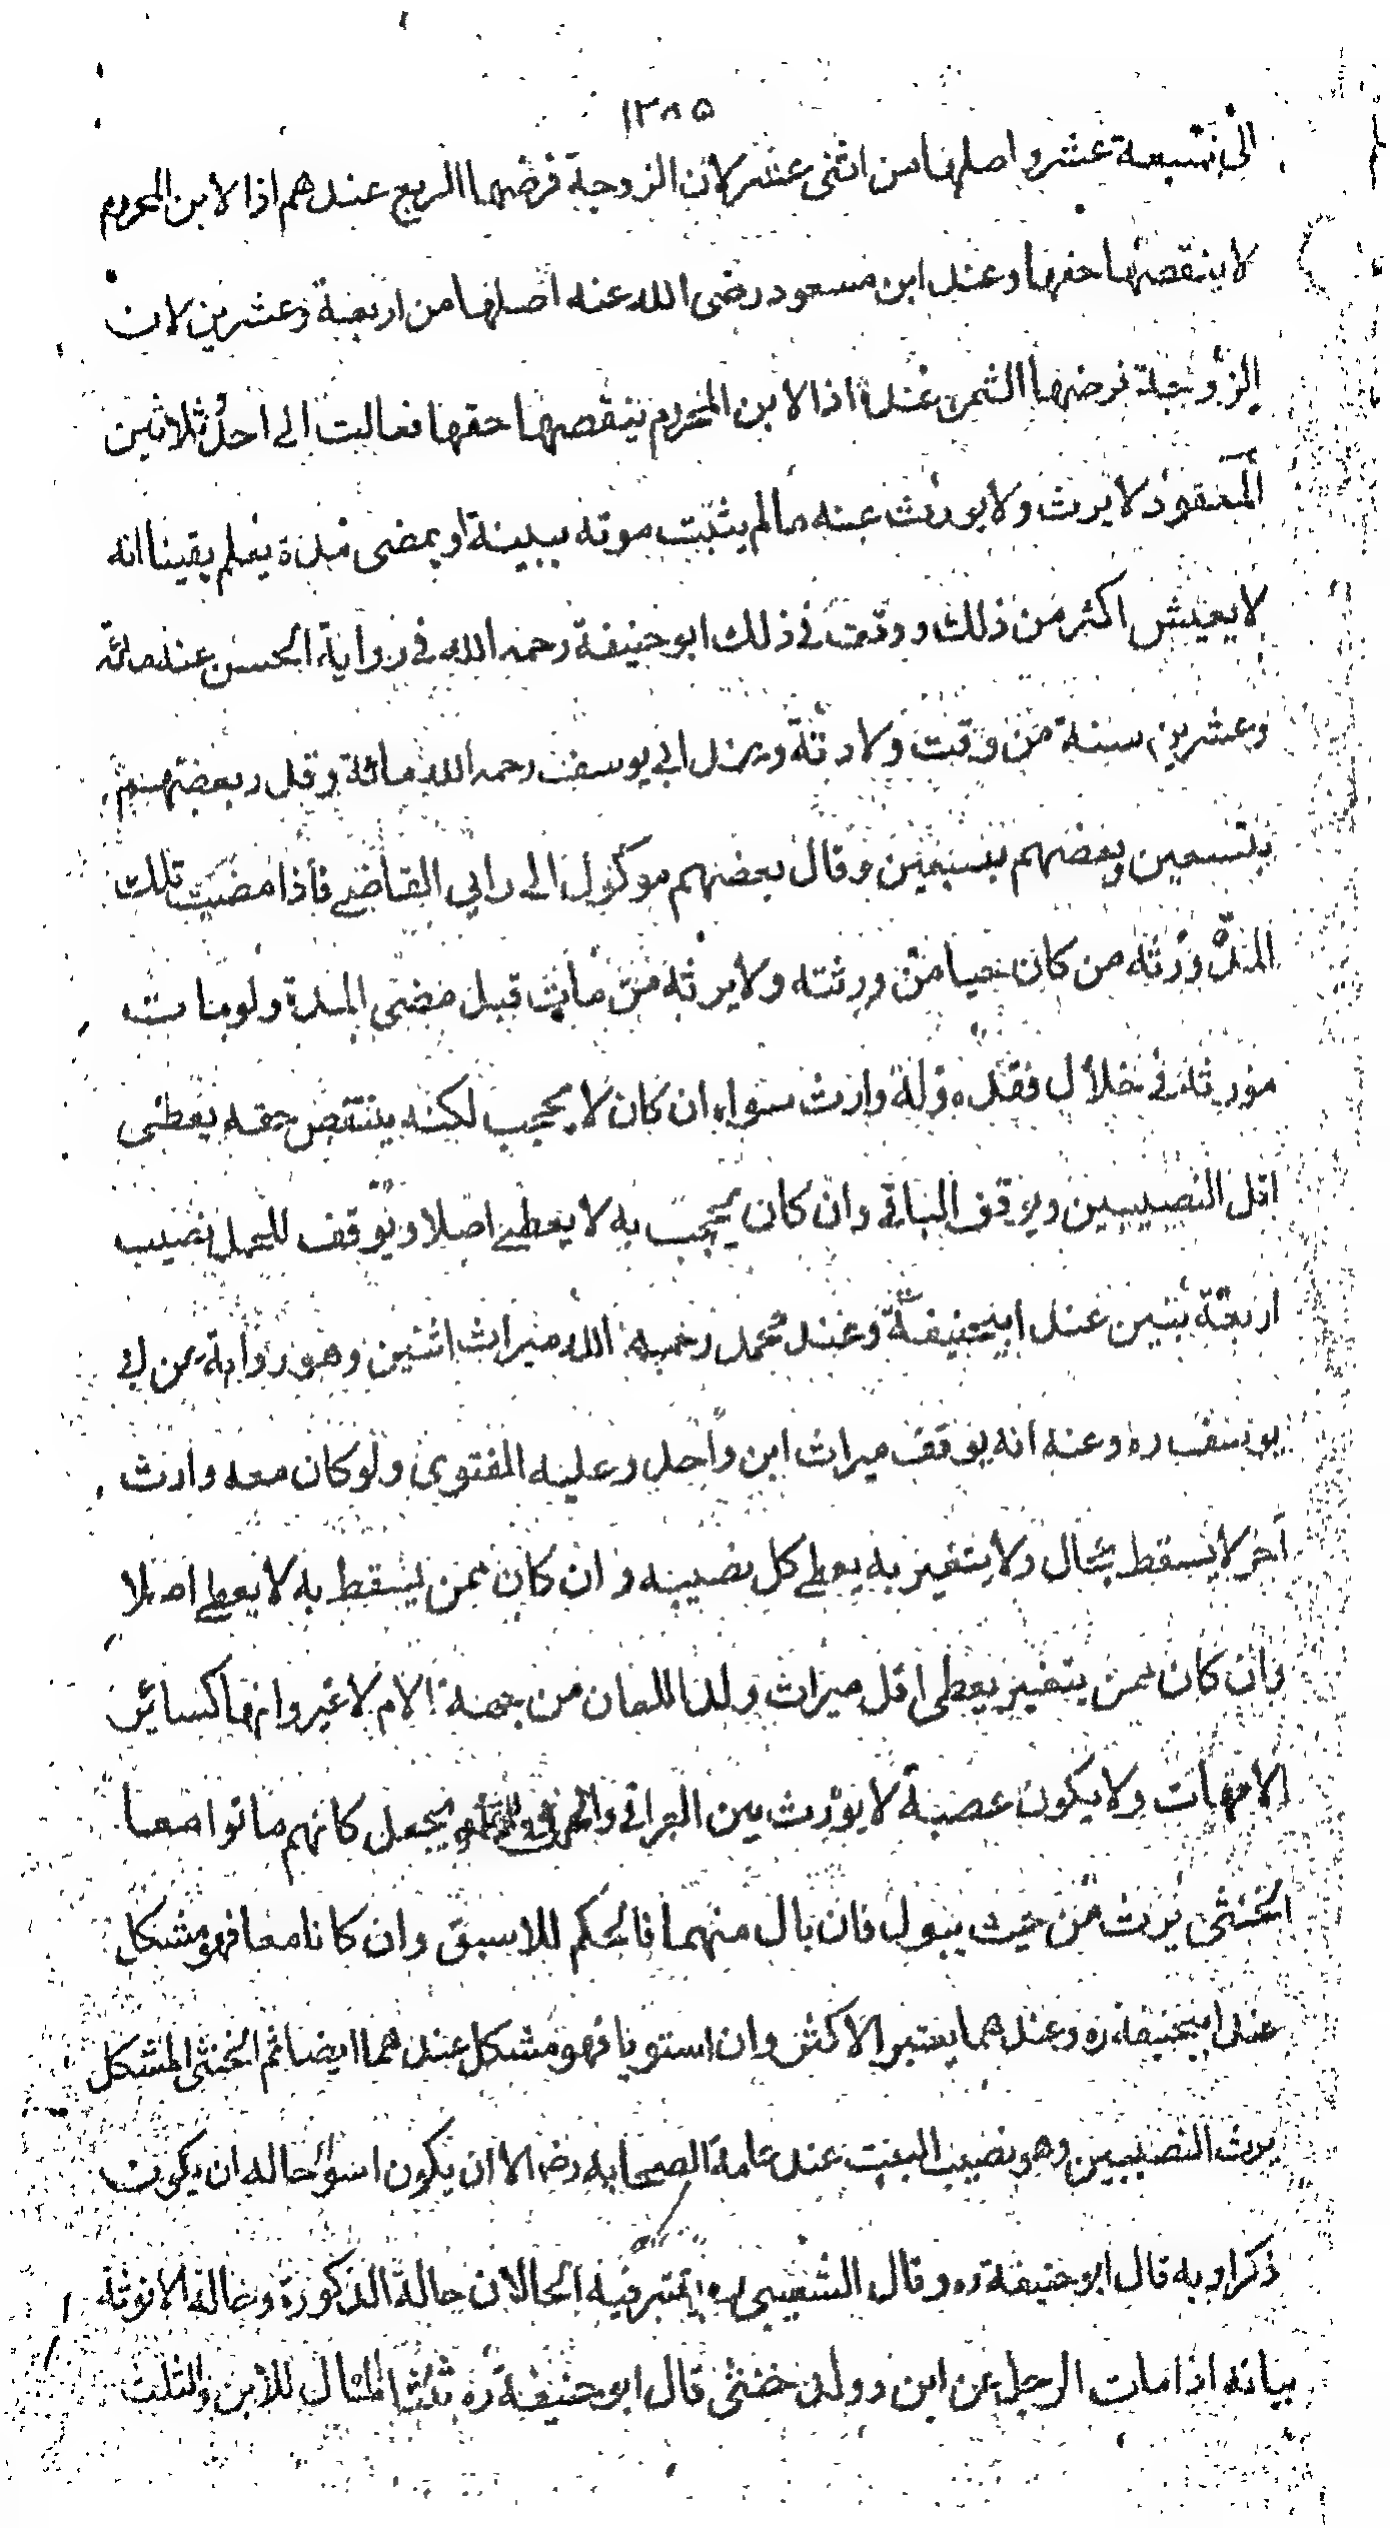 ١٣٨٥
الى تسعة عشر واصلها من اثنى عشر لان الزوجة فرضها الربع عندهم اذا لابن المحروم
لا ينقصها حقها وعند ابن مسعود رضى الله عنه اصلها من اربعة وعشرين لان
الزوجة فرضها الثمن عنده اذا لابن المحروم ينقصها حقها فعالت الى احد وثلاثين
المفقود لا يرث ولا يورث عنه ما لم يثبت موته ببينة او يمضى مدة يعلم يقينا انه
لا يعيش اكثر من ذلك ووقت فى ذلك ابو حنيفة رحمه الله فى رواية الحسن عنه مائة
وعشرين سنة من وقت ولادته وعند ابى يوسف رحمه الله مائة وقدر بعضهم
بتسعين وبعضهم بسبعين وقال بعضهم موكول الى راى القاضى فاذا مضت تلك
المدة ورثه من كان حيا من ورثته ولا يرثه من مات قبل مضى المدة ولو مات
مورثه فى خلال فقده وله وارث سواه ان كان لا يحجب لكنه ينتقص حقه يعطى
اقل النصيبين ويوقف الباقى وان كان يحجب به لا يعطى اصلا ويوقف للحمل نصيب
اربعة بنين عند ابيحنيفة وعند محمد رحمه الله ميراث اثنين وهو رواية عن ابى
يوسف ره وعنه انه يوقف ميراث ابن واحد وعليه الفتوى ولو كان معه وارث
آخر لا يسقط بحال ولا يتغير به يعطى كل نصيبه وان كان ممن يسقط به لا يعطى اصلا
وان كان ممن يتغير يعطى اقل ميراث ولد اللعان من جهة الام لا غير وانها كسائر
الامهات ولا يكون عصبة لا يورث بين الغرقى والحرقى يجعل كانهم ماتوا معا
الخنثى يرث من حيث يبول فان بال منهما فالحكم للاسبق وان كانا معا فهو مشكل
عند ابيحنيفة ره وعندهما يعتبر الاكثر وان استويا فهو مشكل عندهما ايضا ثم الخنثى المشكل
يرث النصيبين وهو نصيب البنت عند عامة الصحابة رض الا ان يكون اسوأ حاله ان يكون
ذكرا وبه قال ابو حنيفة ره وقال الشعبى ره يعتبر فيه الحالان حالة الذكورة وحالة الانوثة
بيانه اذا مات الرجل عن ابن وولد خنثى قال ابو حنيفة ره ثلثا المال للابن والثلث